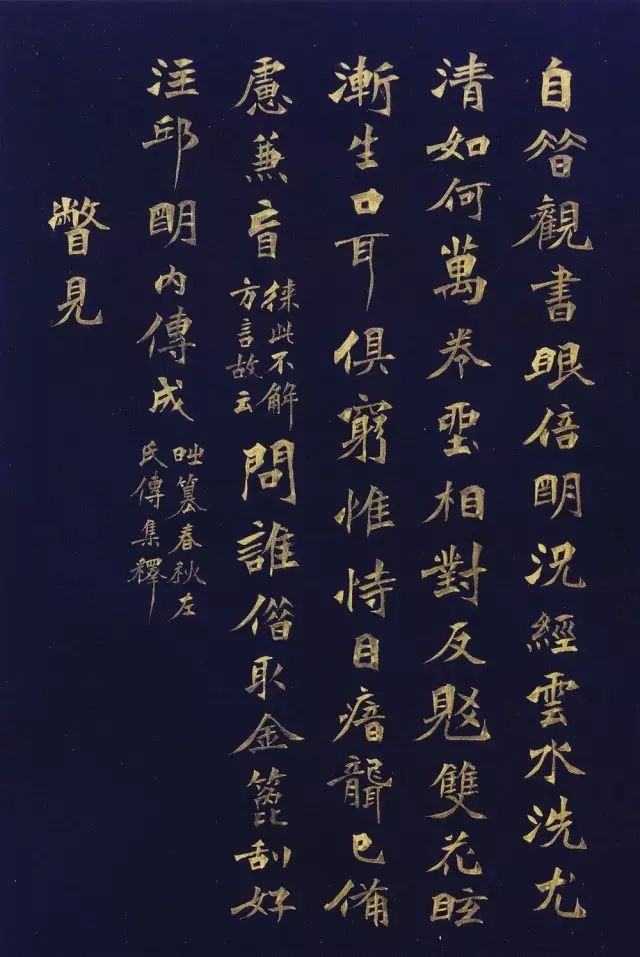 自昔觀書眼倍明況經雲水洗尤
清如何萬卷相對反雙花眩
漸生口耳俱窮惟恃目瘖聾已備
慮兼盲
徠此不解
方言故云
問誰借取金篦刮好
注邱明內傳成
時篹春秋左
氏傳集釋
瞥見